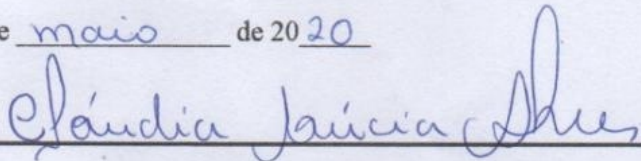 e maio de 2020
Cláudia Lúcia Alves